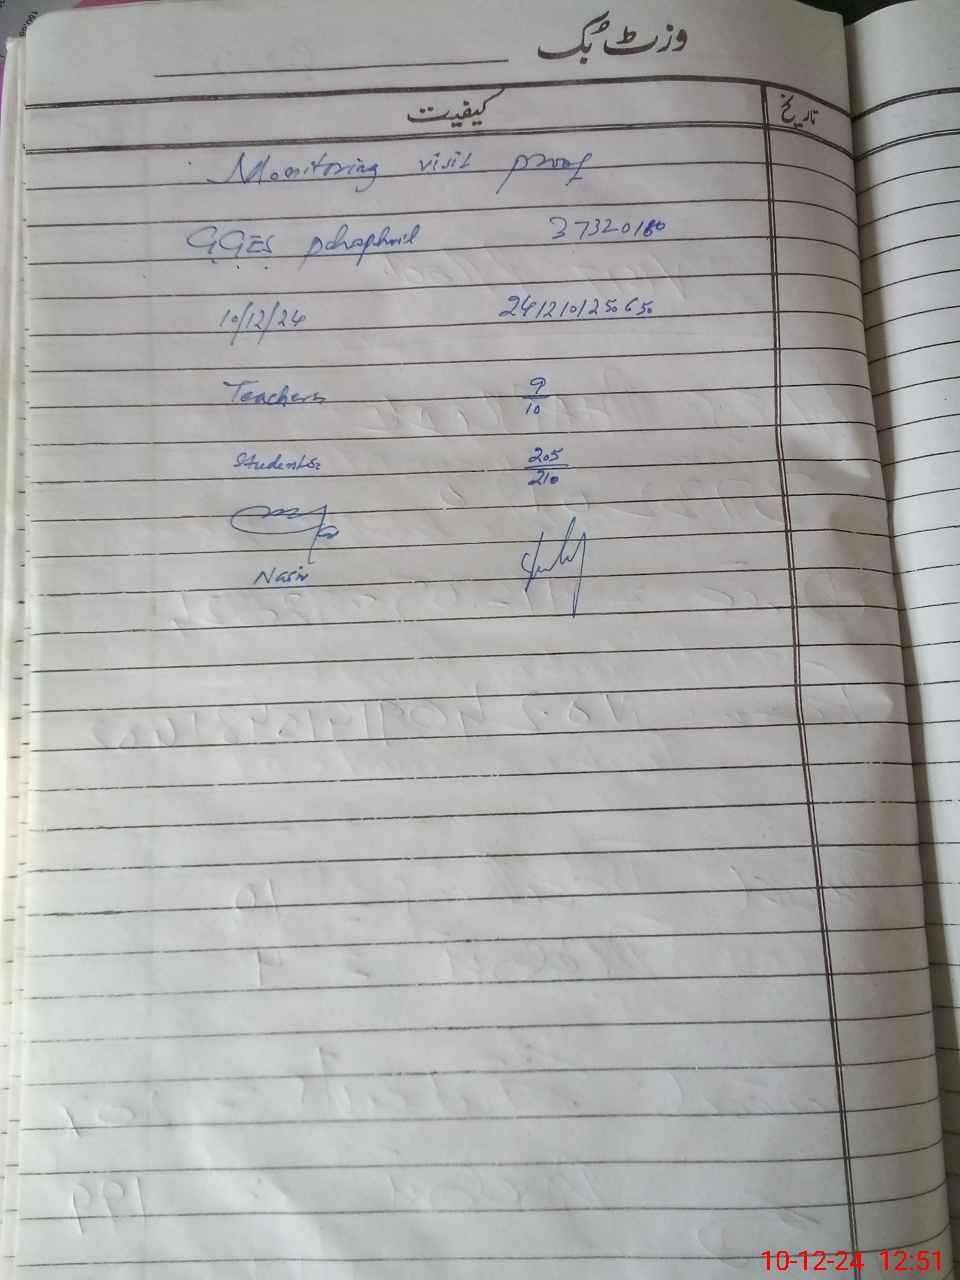 وزٹ بک
تاریخ کیفیت
Monitoring visit proof
GGES 37320180
10/12/24 241210125650
Teachers 9/10
Students 205/210
Nasir
10-12-24 12:51